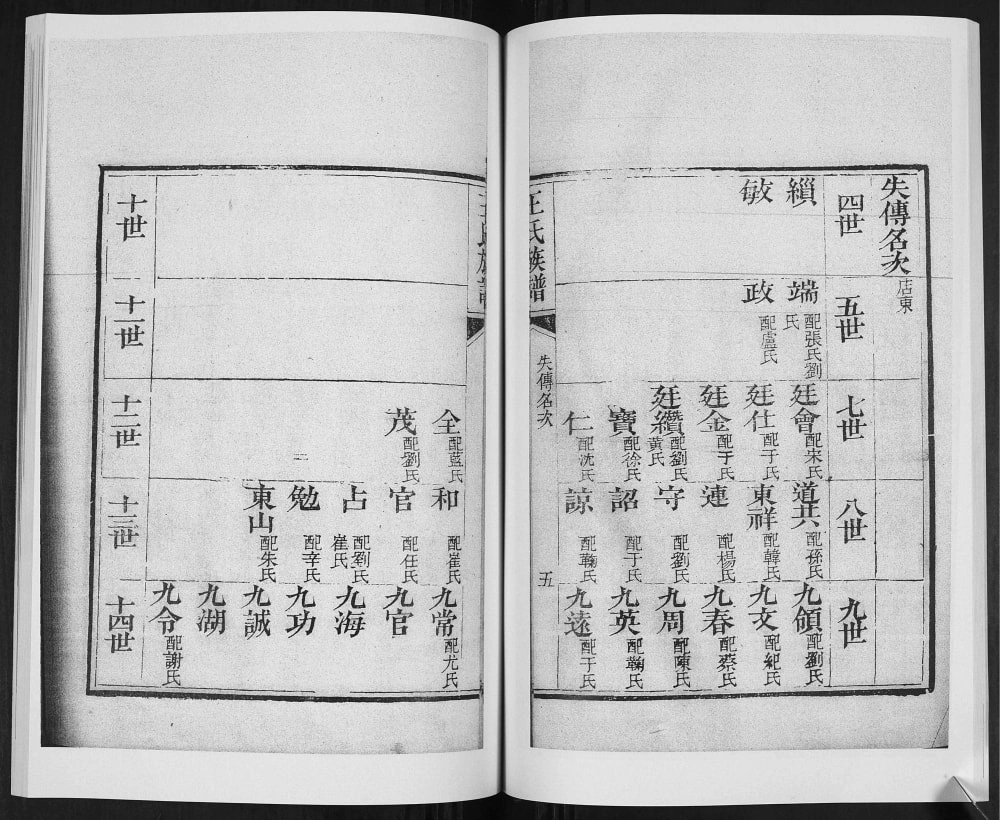 失傳名次 店東
四世
縜
敏
五世
端 配張氏劉氏
政 配盧氏
七世
廷會 配宋氏
廷仕 配于氏
廷金 配于氏
廷纘 配劉氏黃氏
寶 配徐氏
仁 配沈氏
八世
道共 配孫氏
東祥 配韓氏
連 配楊氏
守 配劉氏
詔 配于氏
諒 配鞠氏
九世
九領 配劉氏
九文 配紀氏
九春 配蔡氏
九周 配陳氏
九英 配鞠氏
九遠 配于氏
王氏族譜
失傳名次
五
王氏族譜
十世
十一世
十二世
全 配藍氏
茂 配劉氏
十三世
和 配崔氏
官 配任氏
占 配劉氏崔氏
勉 配辛氏
東山 配朱氏
十四世
九常 配尤氏
九官
九海
九功
九誠
九湖
九令 配謝氏